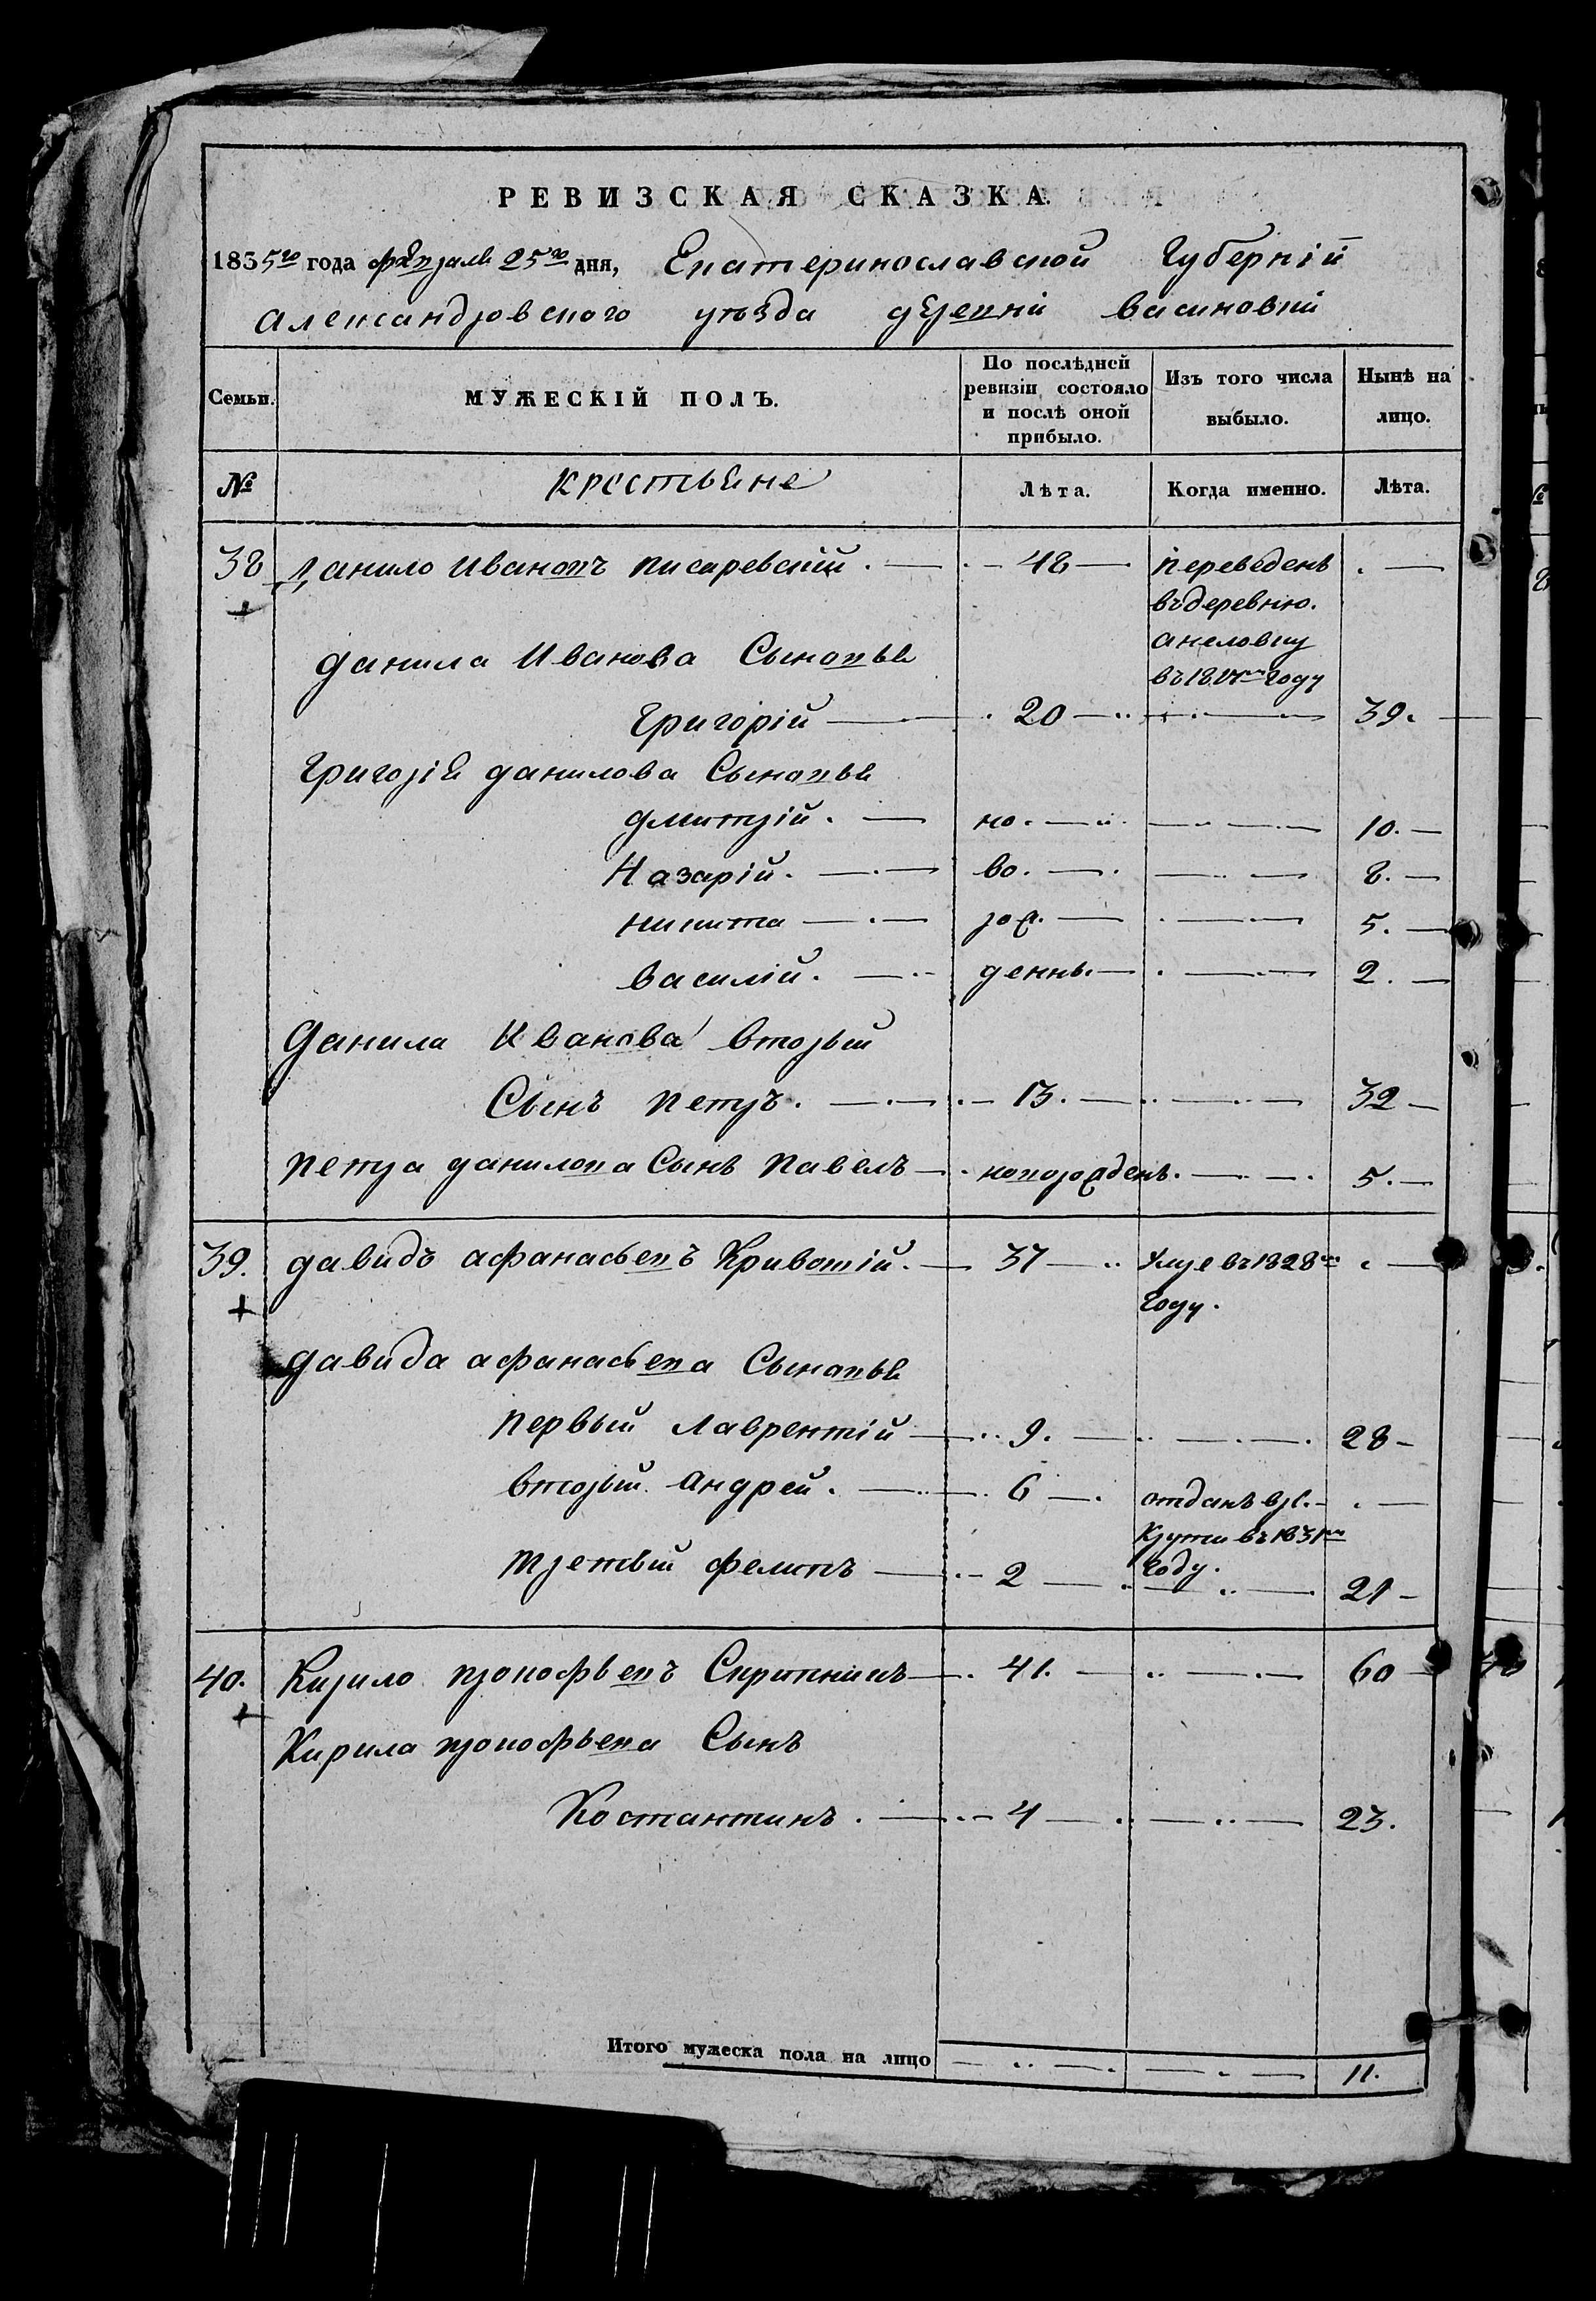 РЕВИЗСКАЯ СКАЗКА.
1835го года февраля 25го дня, Екатеринославской Губерній
александровского уѣзда деревни васиновки
Семьи. МУЖЕСКІЙ ПОЛЪ. По послѣдней ревизіи состояло и послѣ оной прибыло. Изъ того числа выбыло. Нынѣ на лицо.
№ крестьяне Лѣта. Когда именно. Лѣта.
38 Данило Ивановъ писаревскій. 48 переведенъ
въ деревню.
данила Иванова Сыновья
году
Григорій 20 39.
Григорія данилова Сыновья
дмитрій. но. 10.
Назарій. во. 8.
никита рож. 5.
василій. денны. 2.
Данила Иванова вторый
Сынъ петръ. 13. 32
петра данилова Сынъ павелъ новорожденъ. 5.
39. давидъ афанасьевъ 37 Умре въ 1828м
году.
давида афанасьева Сыновья
первый лаврентій 9. 28
вторый андрей. 6 отданъ въ ре-
круты въ 1831м
третьій фелипъ 2 году. 21
40. Кирило прокофьевъ Скрипникъ 41. 60
Кирила прокофьева Сынъ
Костантинъ. 4 23.
Итого мужеска пола на лицо 11.